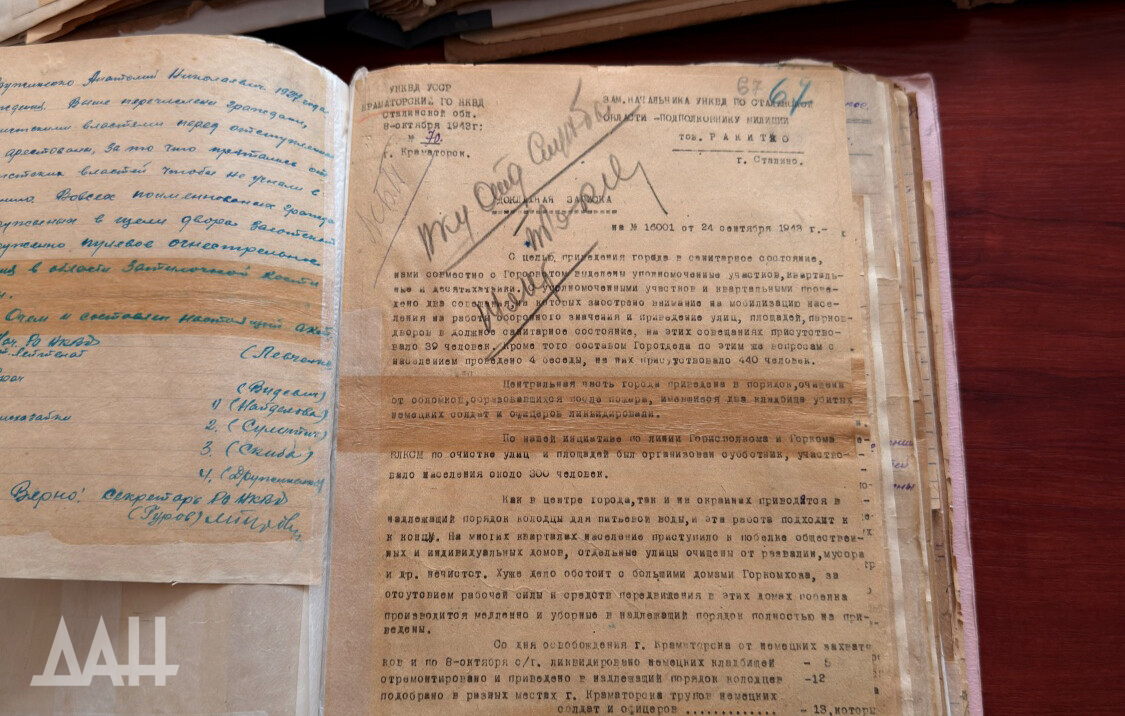 Дружиненко Анатолий Николаевич 1927 года
рождения. Выше перечислены граждане,
властями перед отступлением
арестованы, за то что прятались от
властей чтобы не угнали в
Всех поименованных
в щели двора
пулевое огнестрельное
в области Затылочной кости
О чем и составлен настоящий акт
Нач. РО НКВД
(Лесченко
(Видеман)
1) (Найденова)
2. (Сулентич)
3. (Скиба)
4. (Дружиненко)
Верно: секретарь РО НКВД
(Гуров)
УНКВД УССР
КРАМАТОРСКИЙ ГО НКВД
Сталинской обл.
8-октября 1943г.
№ 70.
г. Краматорск.
67 67
ЗАМ.НАЧАЛЬНИКА УНКВД ПО СТАЛИНСКОЙ
ОБЛАСТИ -ПОДПОЛКОВНИКУ МИЛИЦИИ
тов. РАКИТКО
г. Сталино.
ДОКЛАДНАЯ ЗАПИСКА
на № 16001 от 24 сентября 1943 г.-
С целью приведения города в санитарное состояние,
нами совместно с Горсоветом выделены уполномоченные участков,кварталь-
ные и десятихатники. С уполномоченными участков и квартальными прове-
дено два совещания,на которых заострено внимание на мобилизацию насе-
ления на работы оборонного значения и приведение улиц, площадей,парков-
дворов в должное санитарное состояние, на этих совещаниях присутство-
вало 39 человек. Кроме того составом Горотдела по этим же вопросам с
населением проведено 4 беседы, на них присутствовало 440 человек.
Центральная часть города приведена в порядок,очищена
от обломков,образовавшихся после пожара, имевшиеся два кладбища убитых
немецких солдат и офицеров ликвидировали.
По нашей инициативе по линии Горисполкома и Горкома
ЛКСМ по очистке улиц и площадей был организован субботник, участво-
вало населения около 300 человек.
Как в центре города,так и на окраинах приводятся в
надлежащий порядок колодцы для питьевой воды,и эта работа подходит к
к концу. На многих кварталах население приступило к побелке обществен-
ных и индивидуальных домов, отдельные улицы очищены от развалин,мусора
и др. нечистот. Хуже дело обстоит с большими домами Горкомхоза, за
отсутствием рабочей силы и средств передвижения в этих домах побелка
производится медленно и уборные в надлежащий порядок полностью не при-
ведены.
Со дня освобождения г. Краматорска от немецких захват
ков и по 8-октября с/г. ликвидировано немецких кладбищей - 5
отремонтировано и приведено в надлежащий порядок колодцев -12
подобрано в разных местах г. Краматорска трупов немецких
солдат и офицеров ............. - 13,которы
ДАН